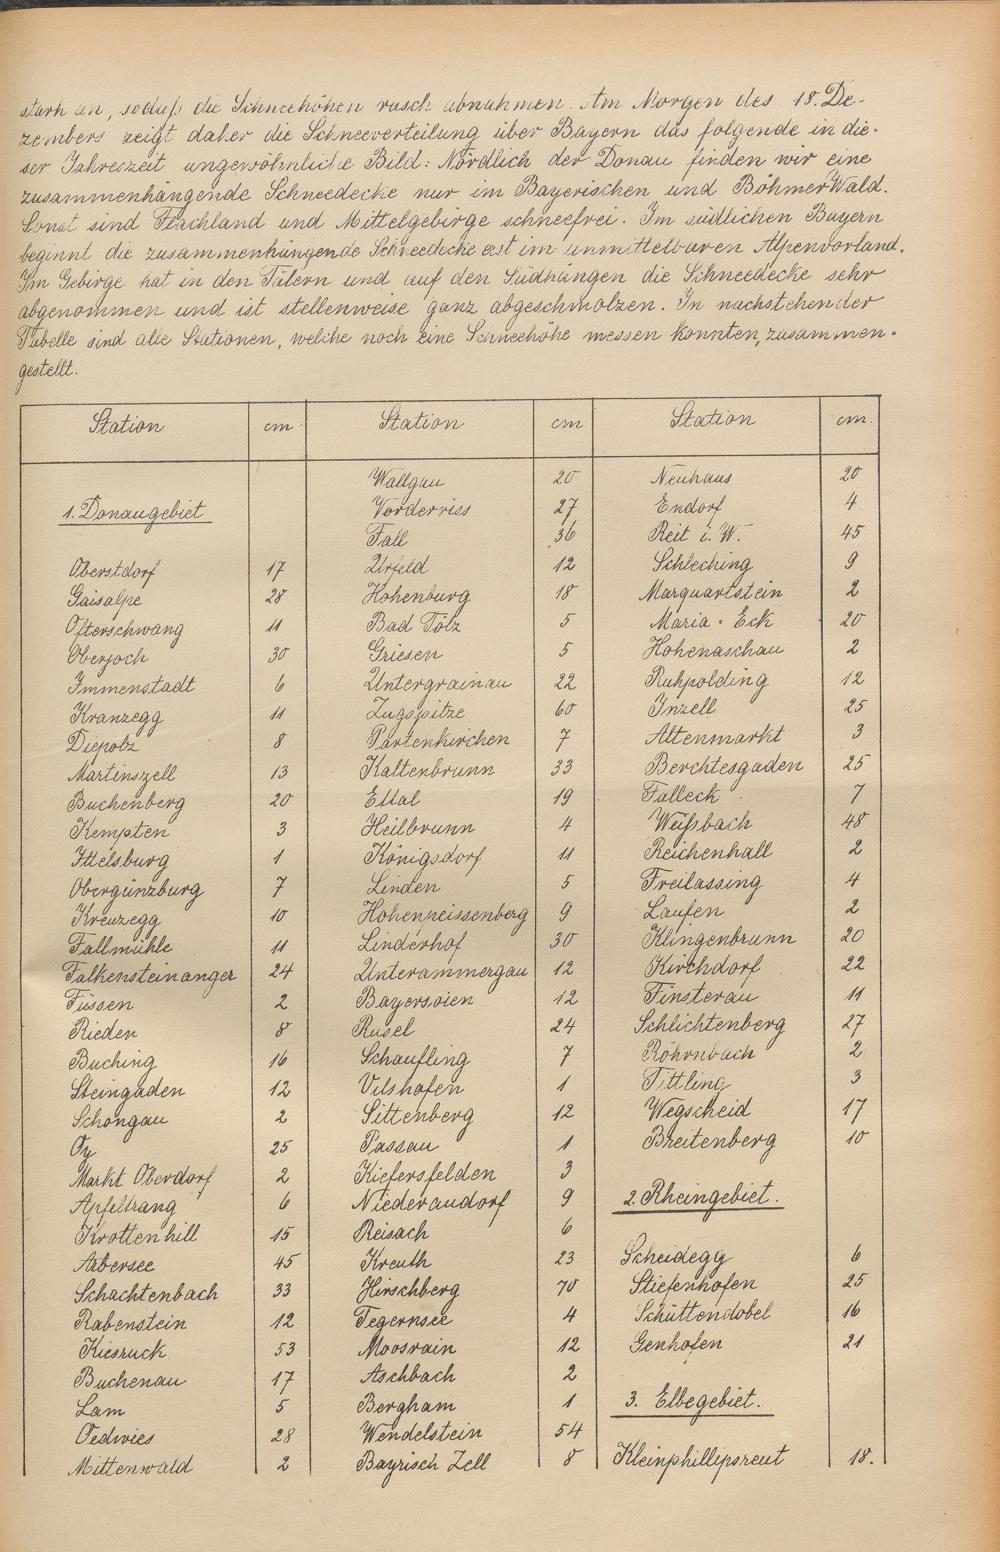 stark an, sodaß die Schneehöhen rasch abnahmen. Am Morgen des 18. De-
zembers zeigt daher die Schneeverteilung über Bayern das folgende in die-
ser Jahreszeit ungewöhnliche Bild: Nördlich der Donau finden wir eine
zusammenhängende Schneedecke nur im Bayerischen und Böhmer Wald.
Sonst sind Flachland und Mittelgebirge schneefrei. Im südlichen Bayern
beginnt die zusammenhängende Schneedecke erst im unmittelbaren Alpenvorland.
Im Gebirge hat in den Tälern und auf den Südhängen die Schneedecke sehr
abgenommen und ist stellenweise ganz abgeschmolzen. In nachstehender
Tabelle sind alle Stationen, welche noch eine Schneehöhe messen konnten, zusammen-
gestellt.
Station cm
1. Donaugebiet
Oberstdorf 17
Gaisalpe 28
Ofterschwang 11
Oberjoch 30
Immenstadt 6
Kranzegg 11
Diepolz 8
Martinszell 13
Buchenberg 20
Kempten 3
Ittelsburg 1
Obergünzburg 7
Kreuzegg 10
Fallmühle 11
Falkensteinanger 24
Füssen 2
Rieden 8
Buching 16
Steingaden 12
Schongau 2
Oy 25
Markt Oberdorf 2
Apfeltrang 6
Krottenhill 15
Arbersee 45
Schachtenbach 33
Rabenstein 12
Kiesruck 53
Buchenau 17
Lam 5
Oedwies 28
Mittenwald 2
Station cm
Wallgau 20
Vorderriss 27
Fall 36
Urfeld 12
Hohenburg 18
Bad Tölz 5
Griesen 5
Untergrainau 22
Zugspitze 60
Partenkirchen 7
Kaltenbrunn 33
Ettal 19
Heilbrunn 4
Königsdorf 11
Linden 5
Hohenpeissenberg 9
Linderhof 30
Unterammergau 12
Bayersoien 12
Rusel 24
Schaufling 7
Vilshofen 1
Sittenberg 12
Passau 1
Kiefersfelden 3
Niederaudorf 9
Reisach 6
Kreuth 23
Hirschberg 70
Tegernsee 4
Moosrain 12
Aschbach 2
Bergham 1
Wendelstein 54
Bayrisch Zell 8
Station cm.
Neuhaus 20
Endorf 4
Reit i. W. 45
Schleching 9
Marquartstein 2
Maria-Eck 20
Hohenaschau 2
Ruhpolding 12
Inzell 25
Altenmarkt 3
Berchtesgaden 25
Falleck 7
Weißbach 48
Reichenhall 2
Freilassing 4
Laufen 2
Klingenbrunn 20
Kirchdorf 22
Finsterau 11
Schlichtenberg 27
Röhrnbach 2
Tittling 3
Wegscheid 17
Breitenberg 10
2. Rheingebiet.
Scheidegg 6
Stiefenhofen 25
Schüttendobel 16
Genhofen 21
3. Elbegebiet.
Kleinphillipsreut 18.